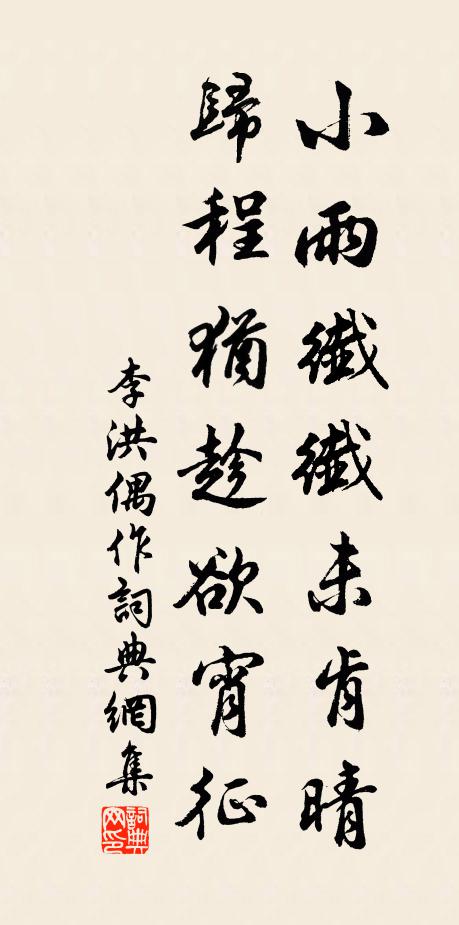 小雨纖纖未肯晴
歸程猶趁欲宵征
李洪偶作詞典網集
詞典網印